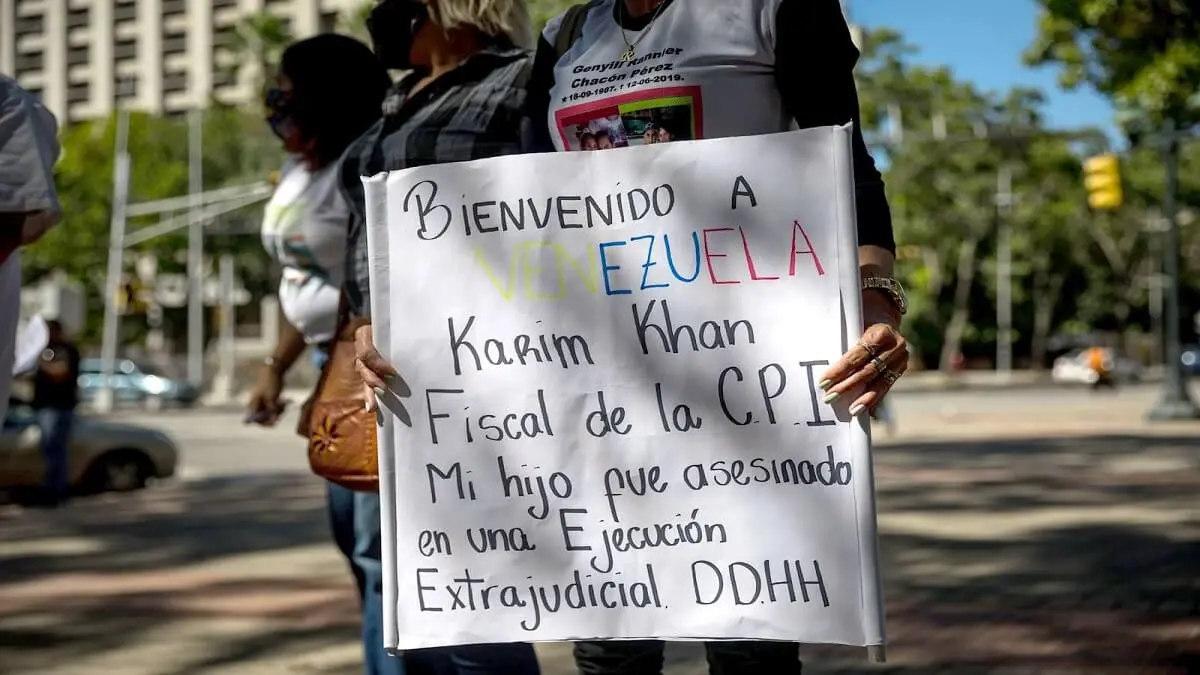 Genyill Rannier
Chacón Pérez
★18-09-1987. †12-06-2019.
BIENVENIDO A
VENEZUELA
Karim Khan
Fiscal de la C.P.I
Mi hijo fue asesinado
en una Ejecución
Extrajudicial. DD.HH